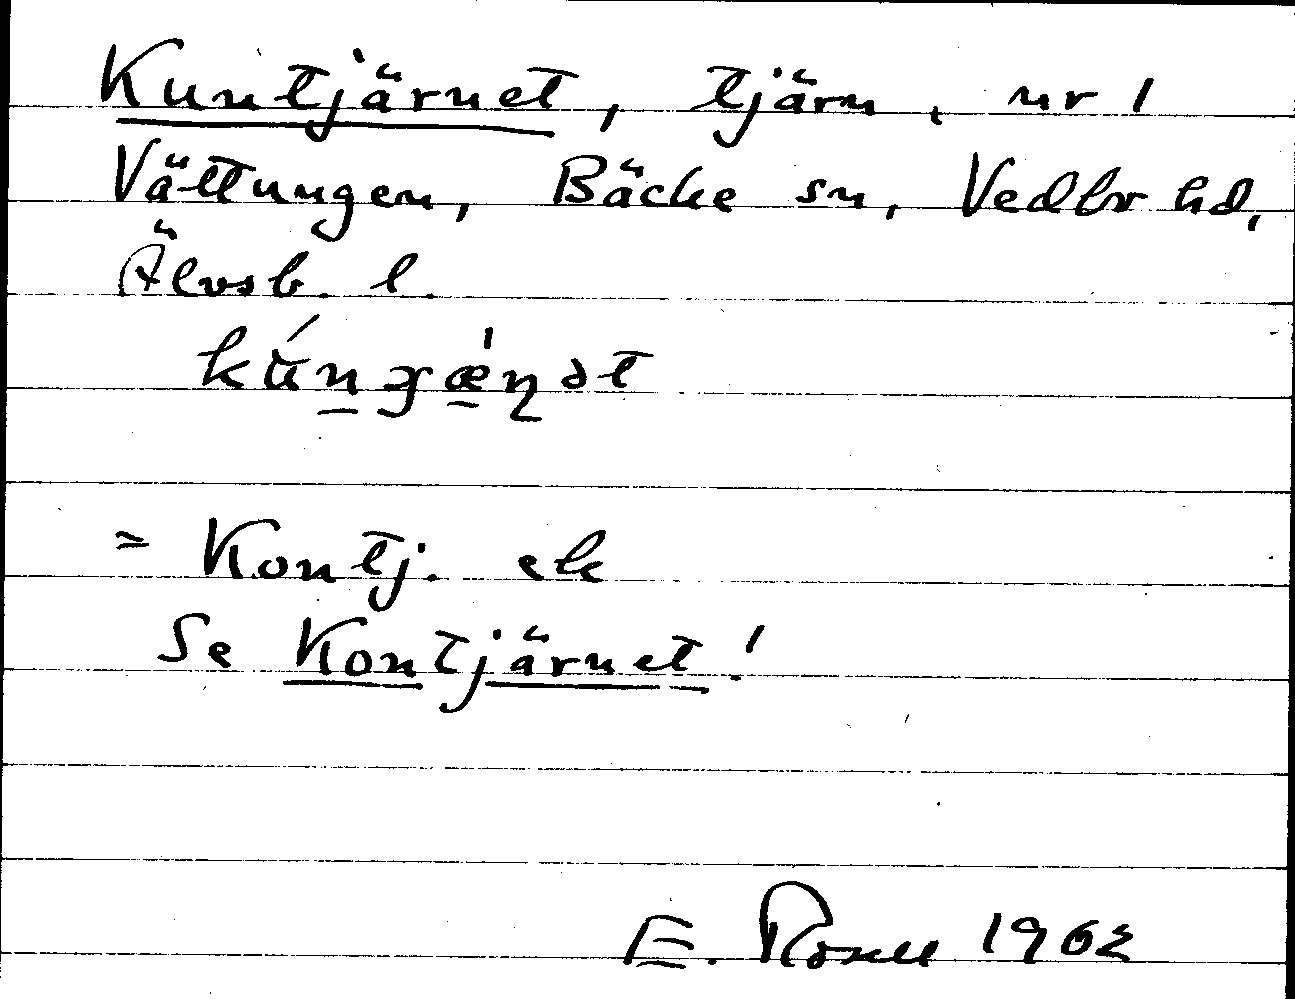 Kuntjärnet, tjärn, nr 1
Vättungen, Bäcke sn, Vedbr hd,
Älvsb. l.
= Kontj. ek
Se Kontjärnet!
E. 1962